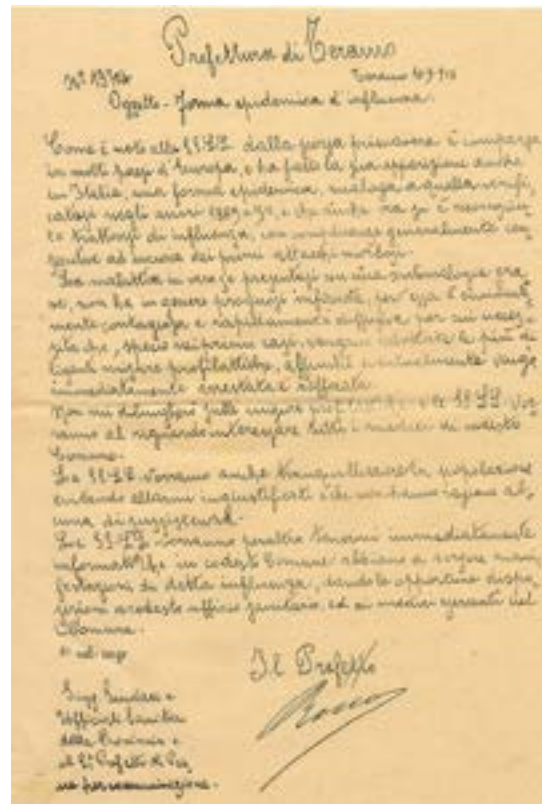 Prefettura di Teramo
N°
Teramo
Oggetto - Forma epidemica d'influenza.
Come è noto alle SS.LL. dalla scorsa primavera è comparsa
in molti paesi d'Europa, e ha fatto la sua apparizione anche
in Italia, una forma epidemica, analoga a quella verifi,
catasi negli anni 1889-90, e che si è
trattarsi di influenza, con complicanze generalmente
ad ancora dei primi attacchi morbosi.
La malattia in vero se presentasi con una sintomatologia gra
ve, non ha in genere prognosi infausta, per essa è
mente contagiosa e rapidamente diffusiva per cui neces,
sita che, specie nei primi casi, vengano adottate le più
misure profilattiche, affinché eventualmente venga
immediatamente arrestata
Non mi dilungherò sulle misure e le SS.LL. vor
ranno al riguardo interessare tutti i medici di codesto
Comune.
Le SS.LL. vorranno anche tranquillizzare la popolazione
evitando allarmi ingiustificati e che non hanno ragione al,
cuna di sussistenza.
Le SS.LL. vorranno peraltro tenermi immediatamente
informato che in codesto Comune abbiano a sorgere mani
festazioni di detta influenza, dando le opportune dispo
sizioni a codesto ufficio sanitario, ed ai medici esercenti nel
Comune.
Il Prefetto
Sigg. Sindaci e
Ufficiali Sanitari
della Provincia e
al S. Prefetto di Pen
ne per comunicazione.